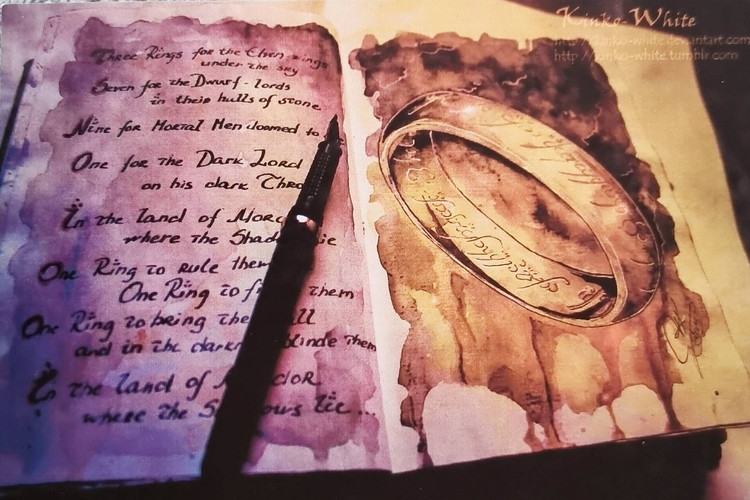 Three Rings for the Elven-kings
under the sky
Seven for the Dwarf-lords
in their halls of stone
Nine for Mortal Men doomed to
One for the Dark Lord
on his dark Thro
In the land of Mor
where the Shad lie
One Ring to rule them
One Ring to f them
One Ring to bring the ll
and in the dark blinde them
In the land of M dor
where the S ows lie...
Kinko-White
http://kinko-white.deviantart.com
http://kinko-white.tumblr.com